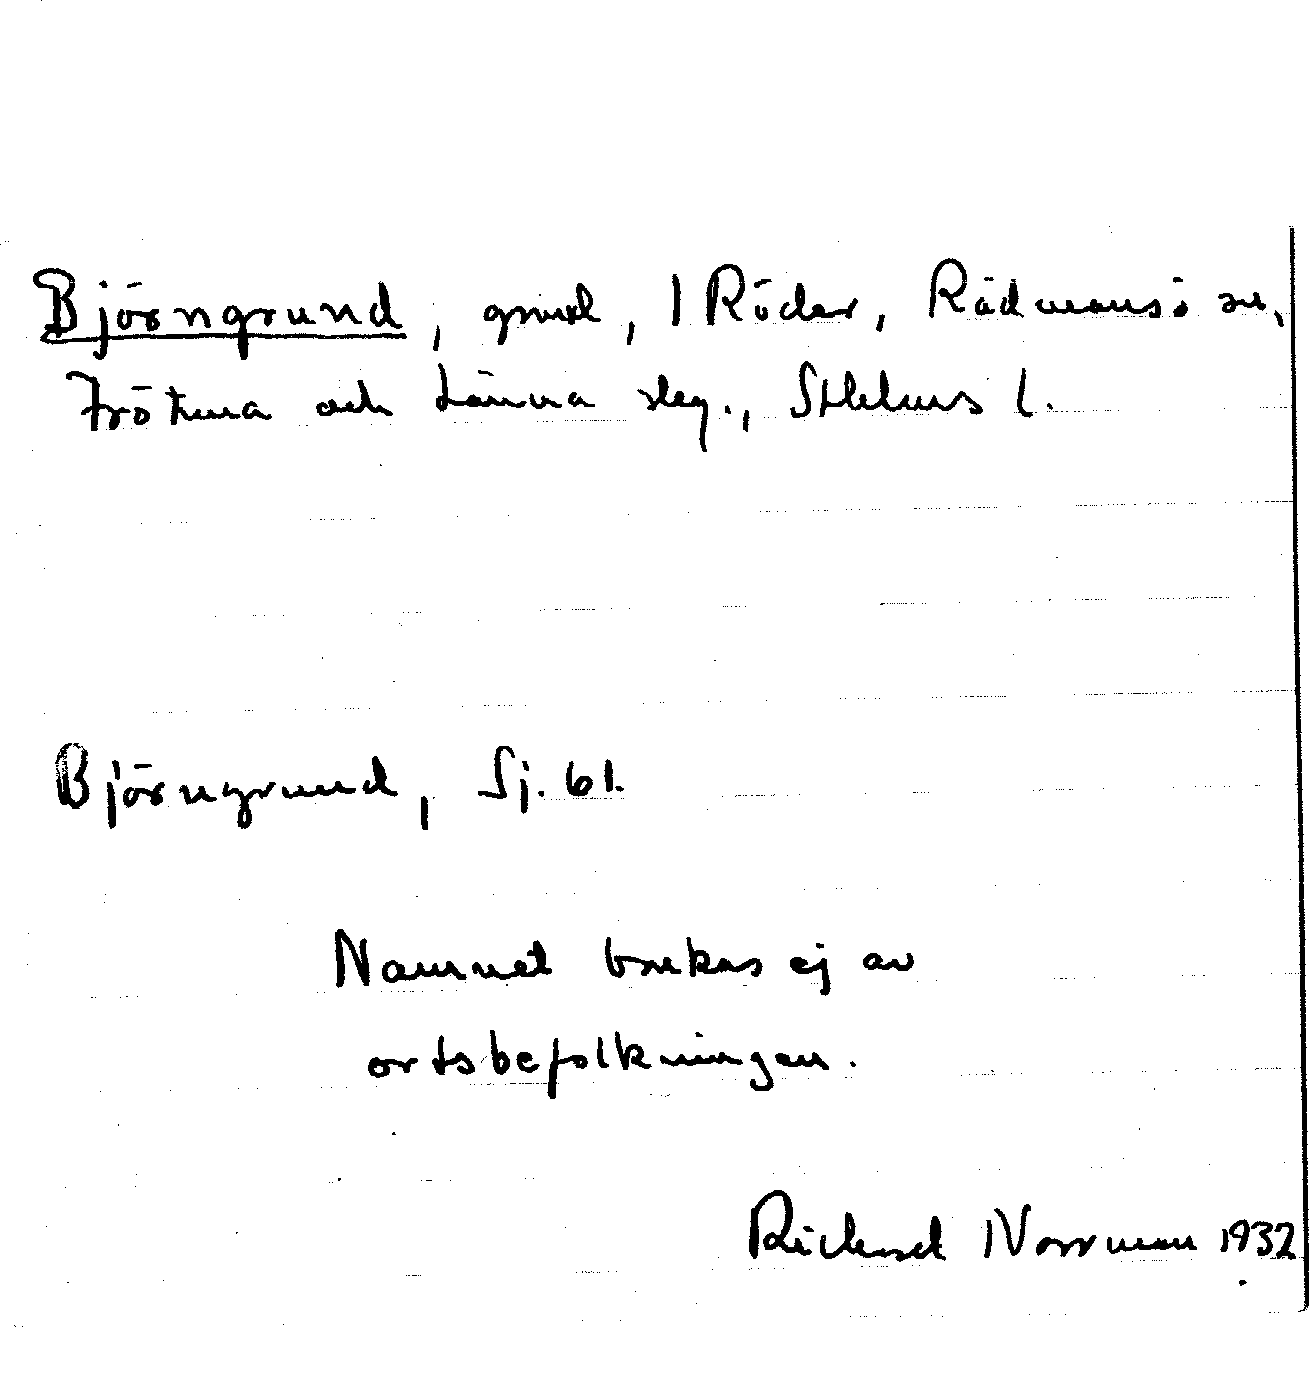 Björngrund, grund, I Röder, Rådmansö sn,
Frötuna och Länna slg., Sthlms l.
Björngrund, Sj. 61.
Namnet brukas ej av
ortsbefolkningen.
Richard Norrman 1932